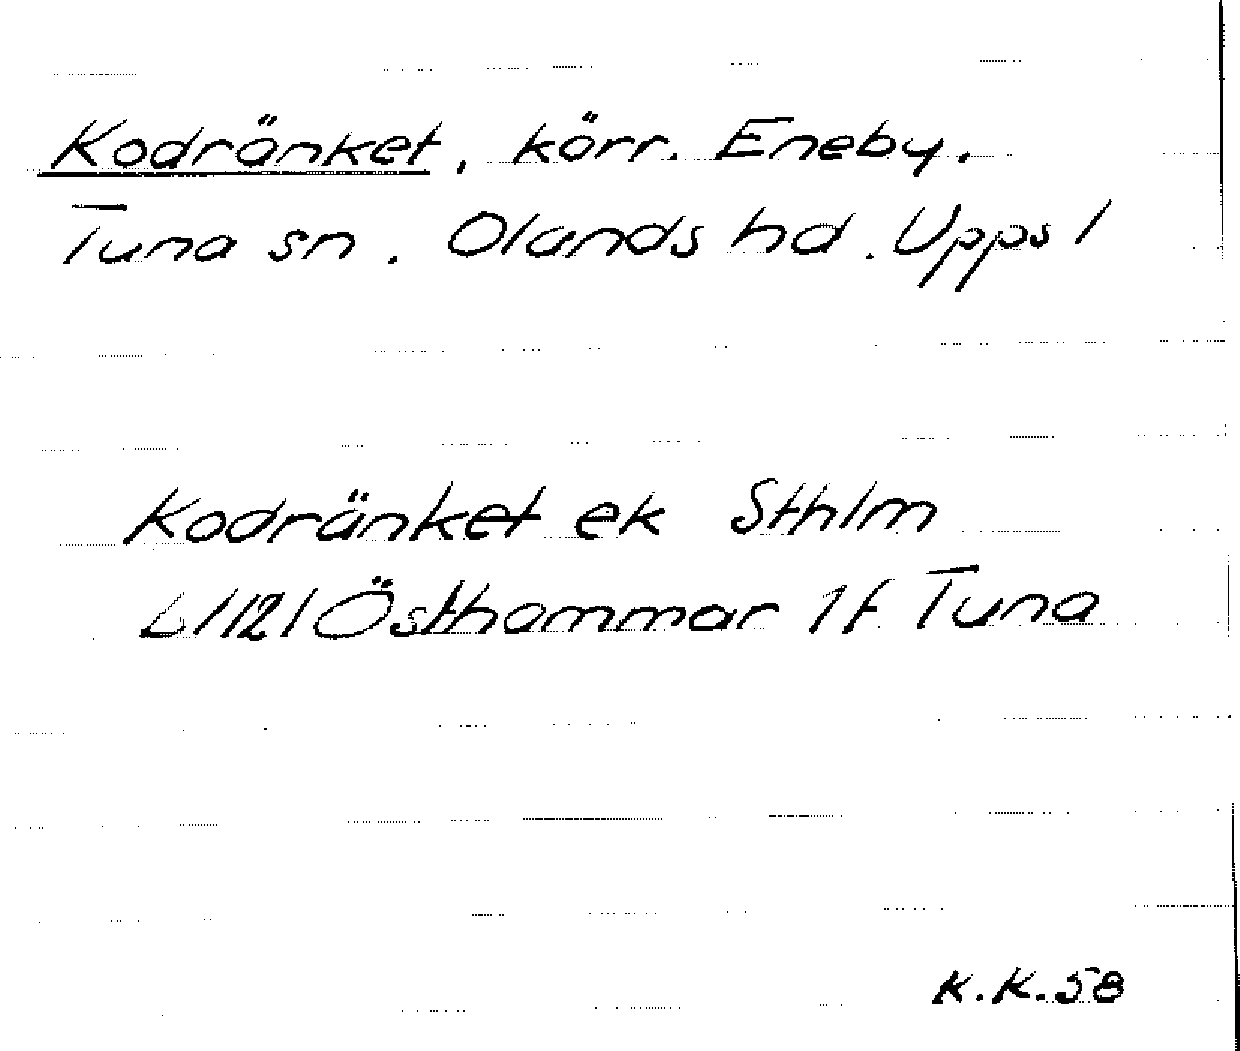 Kodränket, kärr. Eneby.
Tuna sn. Olands hd. Upps l
Kodränket ek Sthlm
L/121 Östhammar 1 f. Tuna
K.K.58